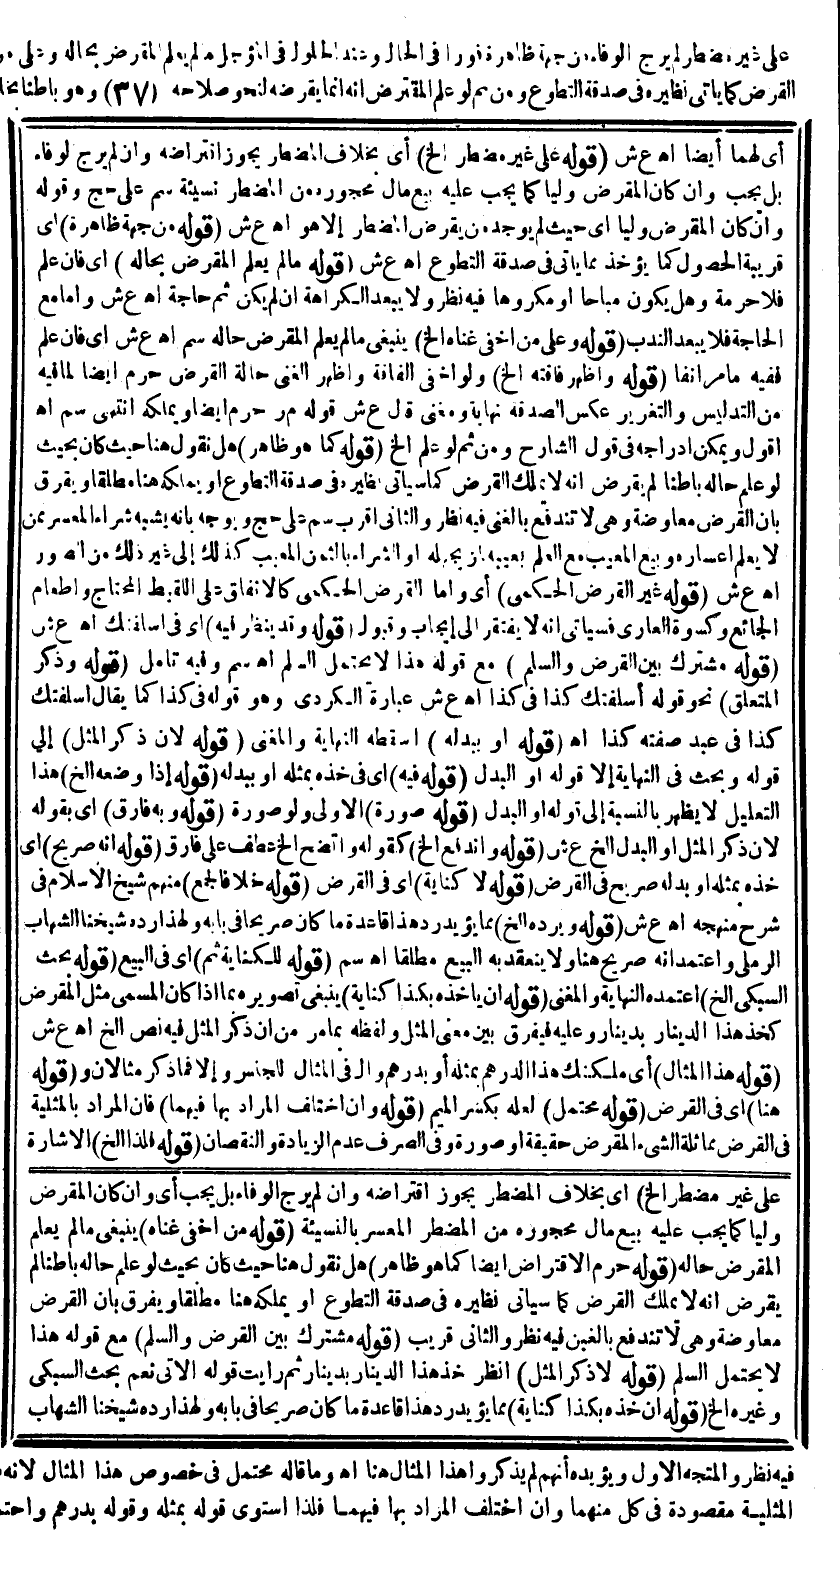 على غير مضطر لم يرج الوفاء من جهة ظاهرة فورا فى الحال وعند الحلول فى المؤجل ما لم يعلم المقرض بحاله وعلى
القرض كما ياتى نظيره فى صدقة التطوع ومن ثم لو علم المقترض انه انما يقرضه لنحو صلاحه (٣٧) وهو باطنا
أى لهما أيضا اه ع ش (قوله على غير مضطر الخ) أى بخلاف المضطر يجوز اقتراضه وان لم يرج لوفاء
بل يجب وان كان المقرض وليا كما يجب عليه بيع مال محجوره من المضطر نسيئة سم على حج وقوله
وان كان المقرض وليا اى حيث لم يوجد من يقرض المضطر إلا هو اه ع ش (قوله من جهة ظاهرة) اى
قريبة الحصول كما يؤخذ مما ياتى فى صدقة التطوع اه ع ش (قوله مالم يعلم المقرض بحاله) اى فان علم
فلا حرمة وهل يكون مباحا او مكروها فيه نظر ولا يبعد الكراهة ان لم يكن ثم حاجة اه ع ش واما مع
الحاجة فلا يبعد الندب (قوله وعلى من اخفى غناه الخ) ينبغى مالم يعلم المقرض حاله سم اه ع ش اى فان علم
ففيه مامر انفا (قوله واظهر فاقته الخ) ولو اخفى الفاقة واظهر الغنى حالة القرض حرم ايضا لما فيه
من التدليس والتغرير عكس الصدقه نهاية ومغنى قال ع ش قوله مر حرم ايضا ويملكه انتهى سم اه
اقول ويمكن ادراجه فى قول الشارح ومن ثم لو علم الخ (قوله كما هو ظاهر) هل نقول هنا حيث كان بحيث
لو علم حاله باطنا لم يقرض انه لا يملك القرض كما سياتى نظيره فى صدقة التطوع او يملكه هنا مطلقا ويفرق
بان القرض معاوضة وهى لا تندفع بالغنى فيه نظر والثانى اقرب سم على حج ويوجه بانه يشبه شراء المعسر ممن
لا يعلم اعساره وبيع المعيب مع العلم بعيبه لمن يجهله او الشراء بالثمن المعيب كذلك إلى غير ذلك من الصور
اه ع ش (قوله غير القرض الحكمى) أى واما القرض الحكمى كالانفاق على اللقيط المحتاج واطعام
الجائع وكسوة العارى فسياتى انه لا يفتقر الى إيجاب وقبول (قوله وقد ينظر فيه) اى فى اسلفتك اه ع ش
(قوله مشترك بين القرض والسلم) مع قوله هذا لا يحتمل السلم اه سم وفيه تامل (قوله وذكر
المتعلق) نحو قوله أسلفتك كذا فى كذا اه ع ش عبارة الكردى وهو قوله فى كذا كما يقال اسلفتك
كذا فى عبد صفته كذا اه (قوله او ببدله) اسقطه النهاية والمغنى (قوله لان ذكر المثل) إلي
قوله وبحث فى النهاية إلا قوله او البدل (قوله فيه) اى فى خذه بمثله او ببدله (قوله إذا وضعه الخ) هذا
التعليل لا يظهر بالنسبة إلى قوله او البدل (قوله صورة) الاولى ولو صورة (قوله وبه فارق) اى بقوله
لان ذكر المثل او البدل الخ ع ش (قوله واندفع الخ) كقوله واتضح الخ عطف على فارق (قوله انه صريح) اى
خذه بمثله او بدله صريح فى القرض (قوله لا كناية) اى فى القرض (قوله خلافا لجمع) منهم شيخ الاسلام فى
شرح منهجه اه ع ش (قوله ويرده الخ) مما يؤيد رد هذا قاعدة ما كان صريحا فى بابه ولهذا رده شيخنا الشهاب
الرملى واعتمد انه صريح هنا ولا ينعقد به البيع مطلقا اه سم (قوله للكناية ثم) اى فى البيع (قوله بحث
السبكى الخ) اعتمده النهاية والمغنى (قوله ان ياخذه بكذا كناية) ينبغى تصويره بما اذا كان المسمى مثل المقرض
كخذ هذا الدينار بدينار وعليه فيفرق بين معنى المثل ولفظه بمامر من ان ذكر المثل فيه نص الخ اه ع ش
(قوله هذا المثال) أى ملكتك هذا الدرهم بمثله أو بدرهم وال فى المثال للجنس وإلا فما ذكر مثالان و (قوله
هنا) اى فى القرض (قوله محتمل) لعله بكسر الميم (قوله وان اختلف المراد بها فيهما) فان المراد بالمثلية
فى القرض مماثلة الشىء المقرض حقيقة او صورة وفى الصرف عدم الزيادة والنقصان (قوله فلذا الخ) الاشارة
على غير مضطر الخ) اى بخلاف المضطر يجوز اقتراضه وان لم يرج الوفاء بل يجب أى وان كان المقرض
وليا كما يجب عليه بيع مال محجوره من المضطر المعسر بالنسيئة (قوله من اخفى غناه) ينبغى مالم يعلم
المقرض حاله (قوله حرم الاقتراض ايضا كما هو ظاهر) هل نقول هنا حيث كان بحيث لو علم حاله باطنا لم
يقرض انه لا يملك القرض كما سياتى نظيره فى صدقة التطوع او يملكه هنا مطلقا ويفرق بان القرض
معاوضة وهى لا تندفع بالغبن فيه نظر والثانى قريب (قوله مشترك بين القرض والسلم) مع قوله هذا
لا يحتمل السلم (قوله لا ذكر المثل) انظر خذ هذا الدينار بدينار ثم رايت قوله الآتى نعم بحث السبكى
وغيره الخ (قوله ان خذه بكذا كناية) مما يؤيد رد هذا قاعدة ما كان صريحا فى بابه ولهذا رده شيخنا الشهاب
فيه نظر والمتجه الاول ويؤيده أنهم لم يذكروا هذا المثال هنا اه وما قاله محتمل فى خصوص هذا المثال لانه
المثلية مقصودة فى كل منهما وان اختلف المراد بها فيهما فلذا استوى قوله بمثله وقوله بدرهم